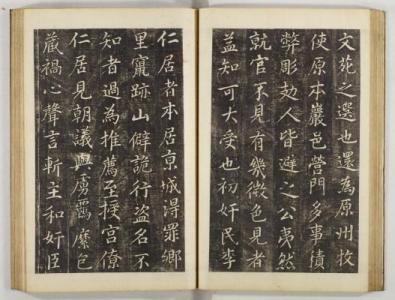 文苑之選也還為原州牧
使原本巖邑營門多事積
弊彫人皆避之公夷然
就官不見有幾微色見者
益知可大受也初奸民李
仁居者本居京城得罪鄉
里竄跡山僻詭行盜名不
知者過為推薦至授官僚
仁居見朝議與虜羈縻包
藏禍心聲言斬主和奸臣